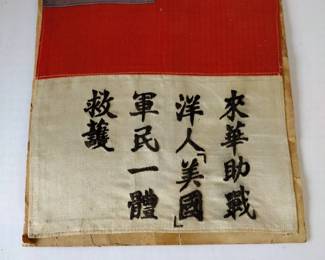 來華助戰
洋人「美國」
軍民一體
救護